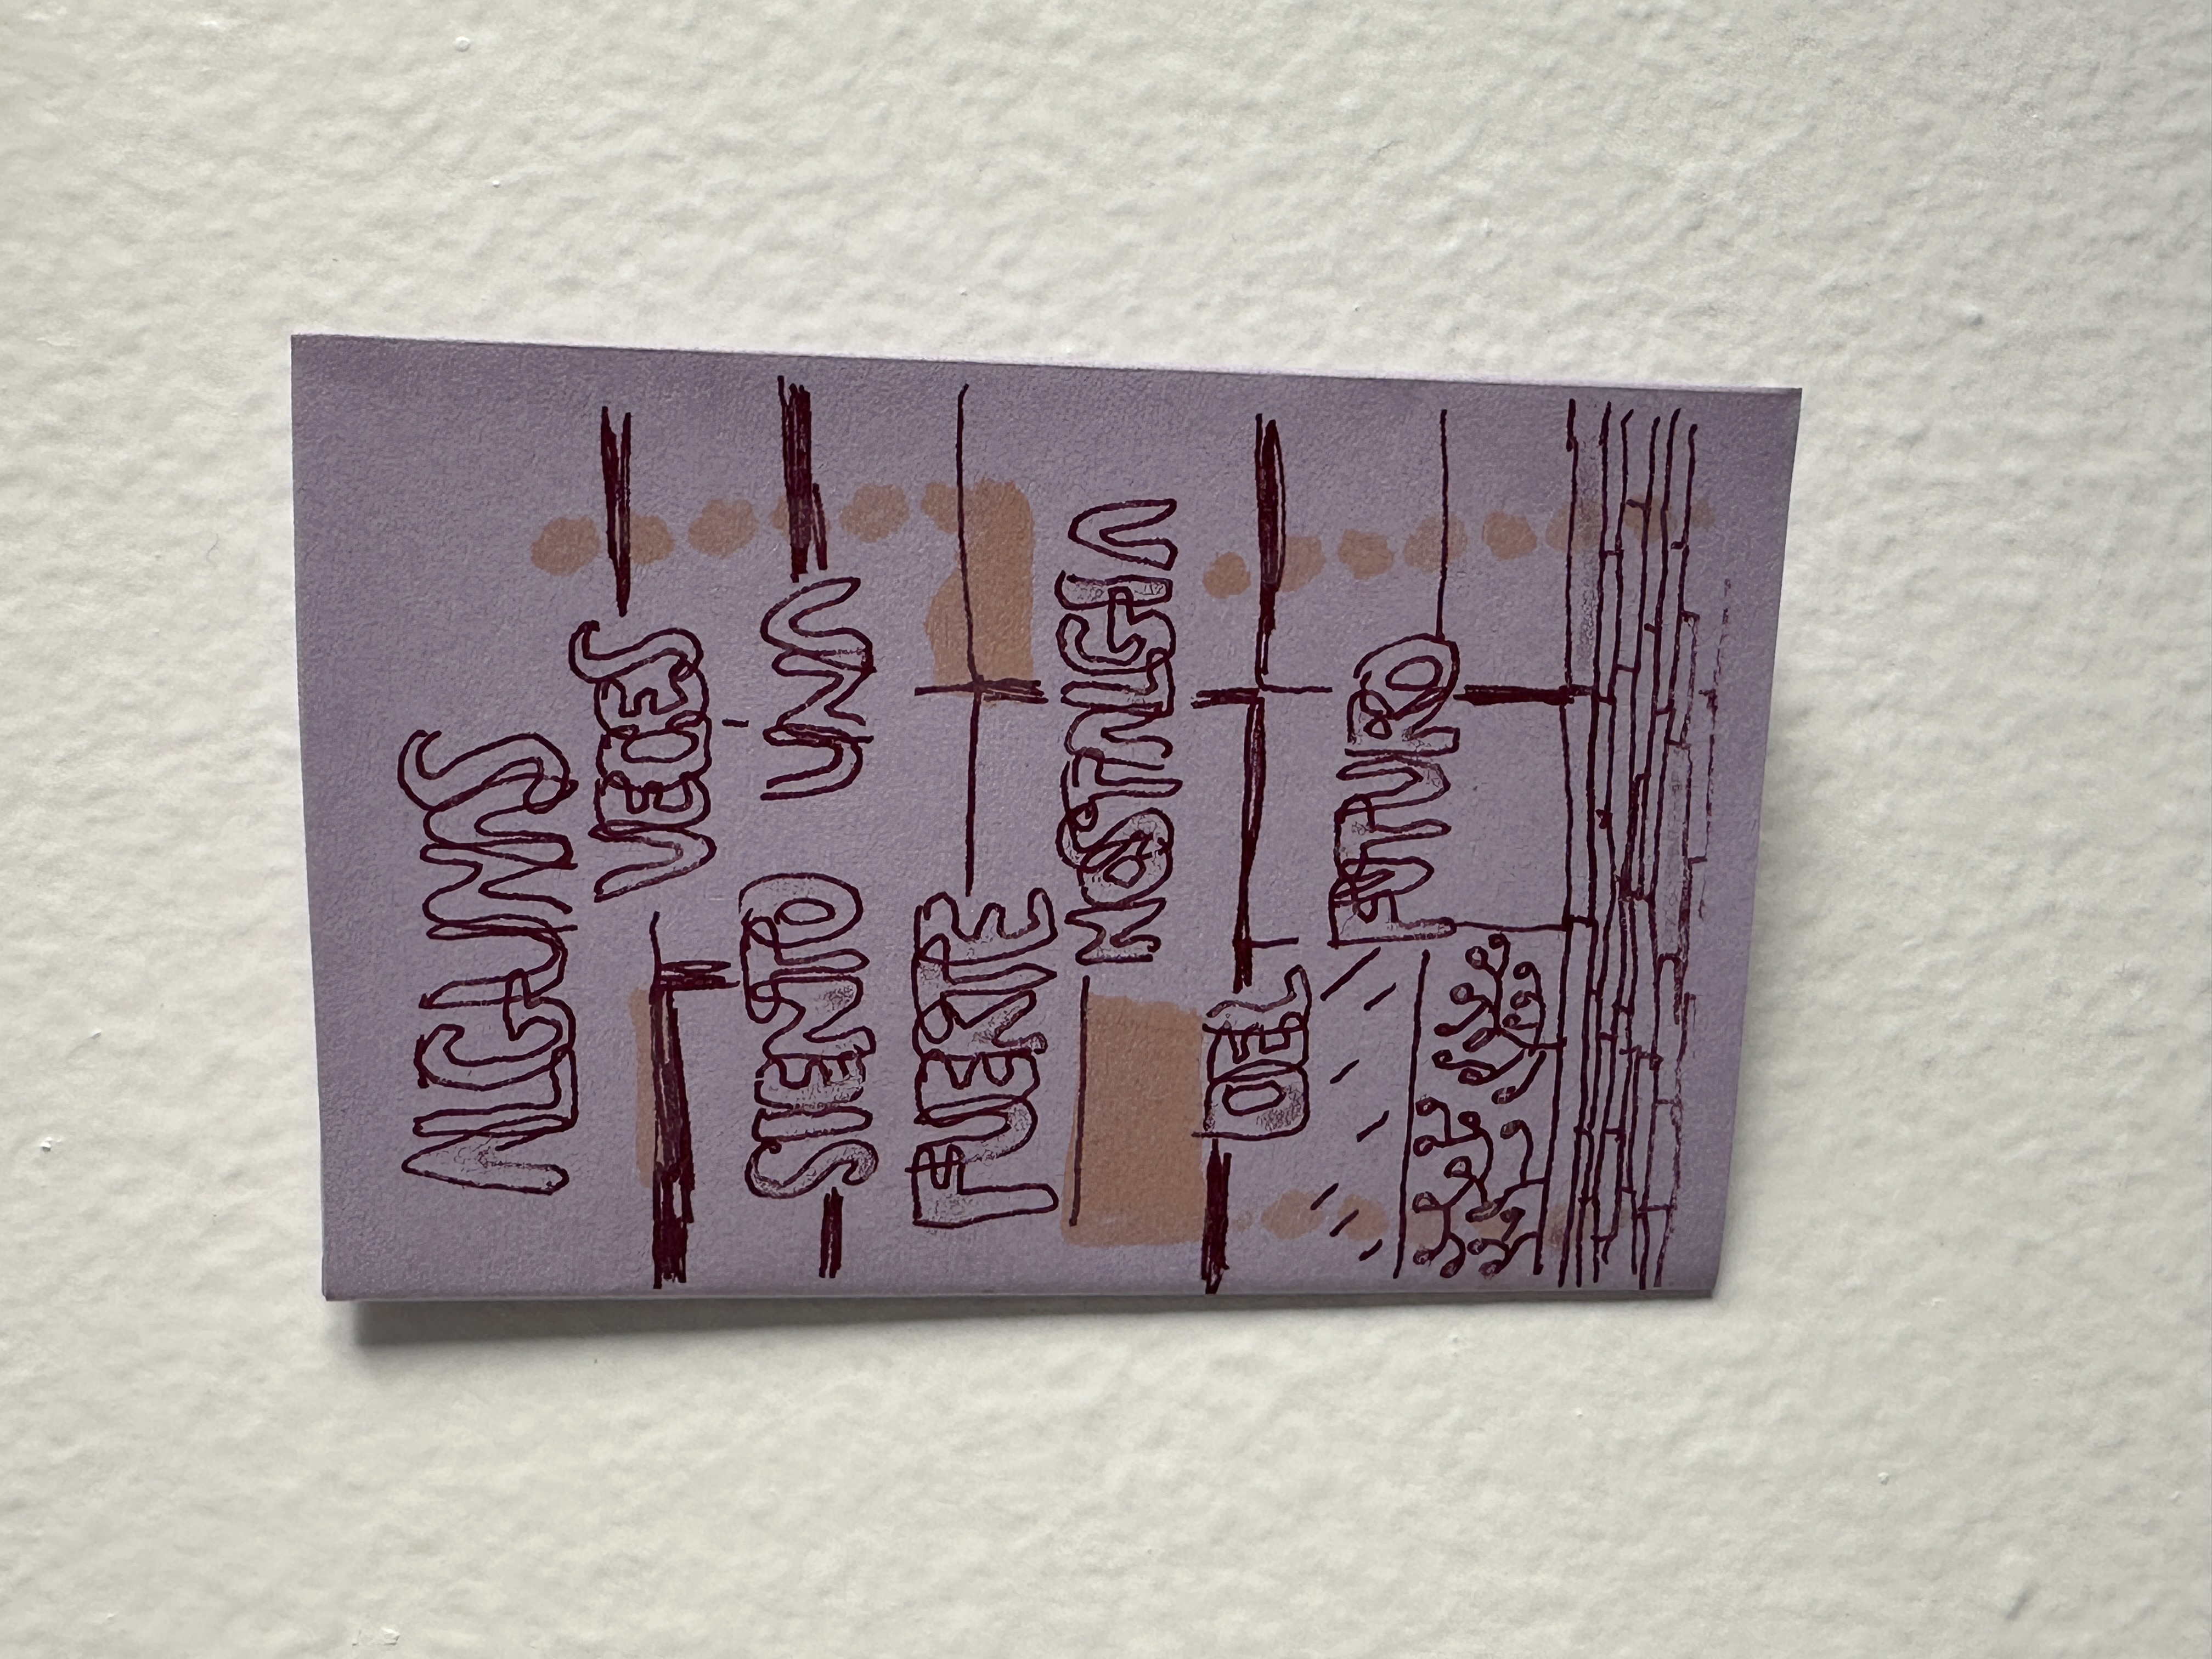 ALGUNAS
VECES
SIENTO UNA
FUERTE
NOSTALGIA
DEL
FUTURO